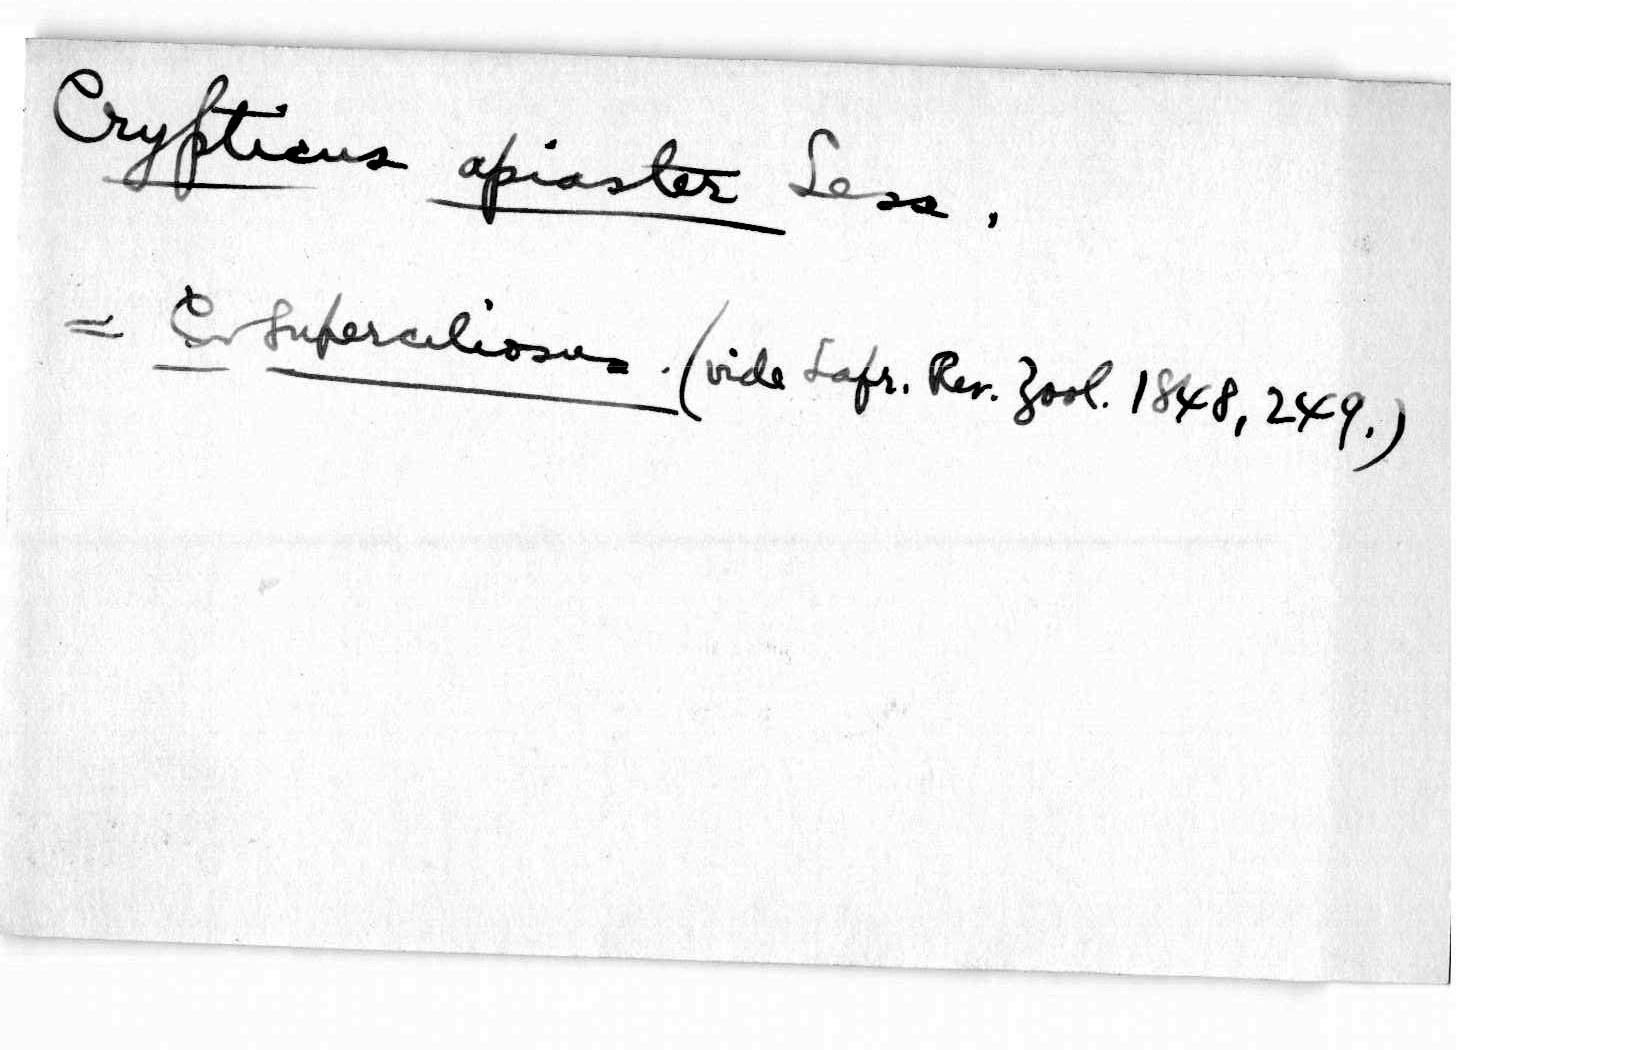 Crypticus apiaster Less.
= C. superciliosus. (vide Lafr. Rev. Zool. 1848, 249.)